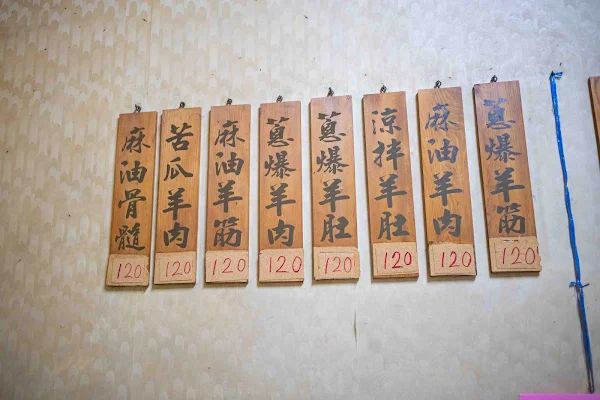 麻油骨髓
120
苦瓜羊肉
120
麻油羊筋
120
蔥爆羊肉
120
蔥爆羊肚
120
涼拌羊肚
120
麻油羊肉
120
蔥爆羊筋
120